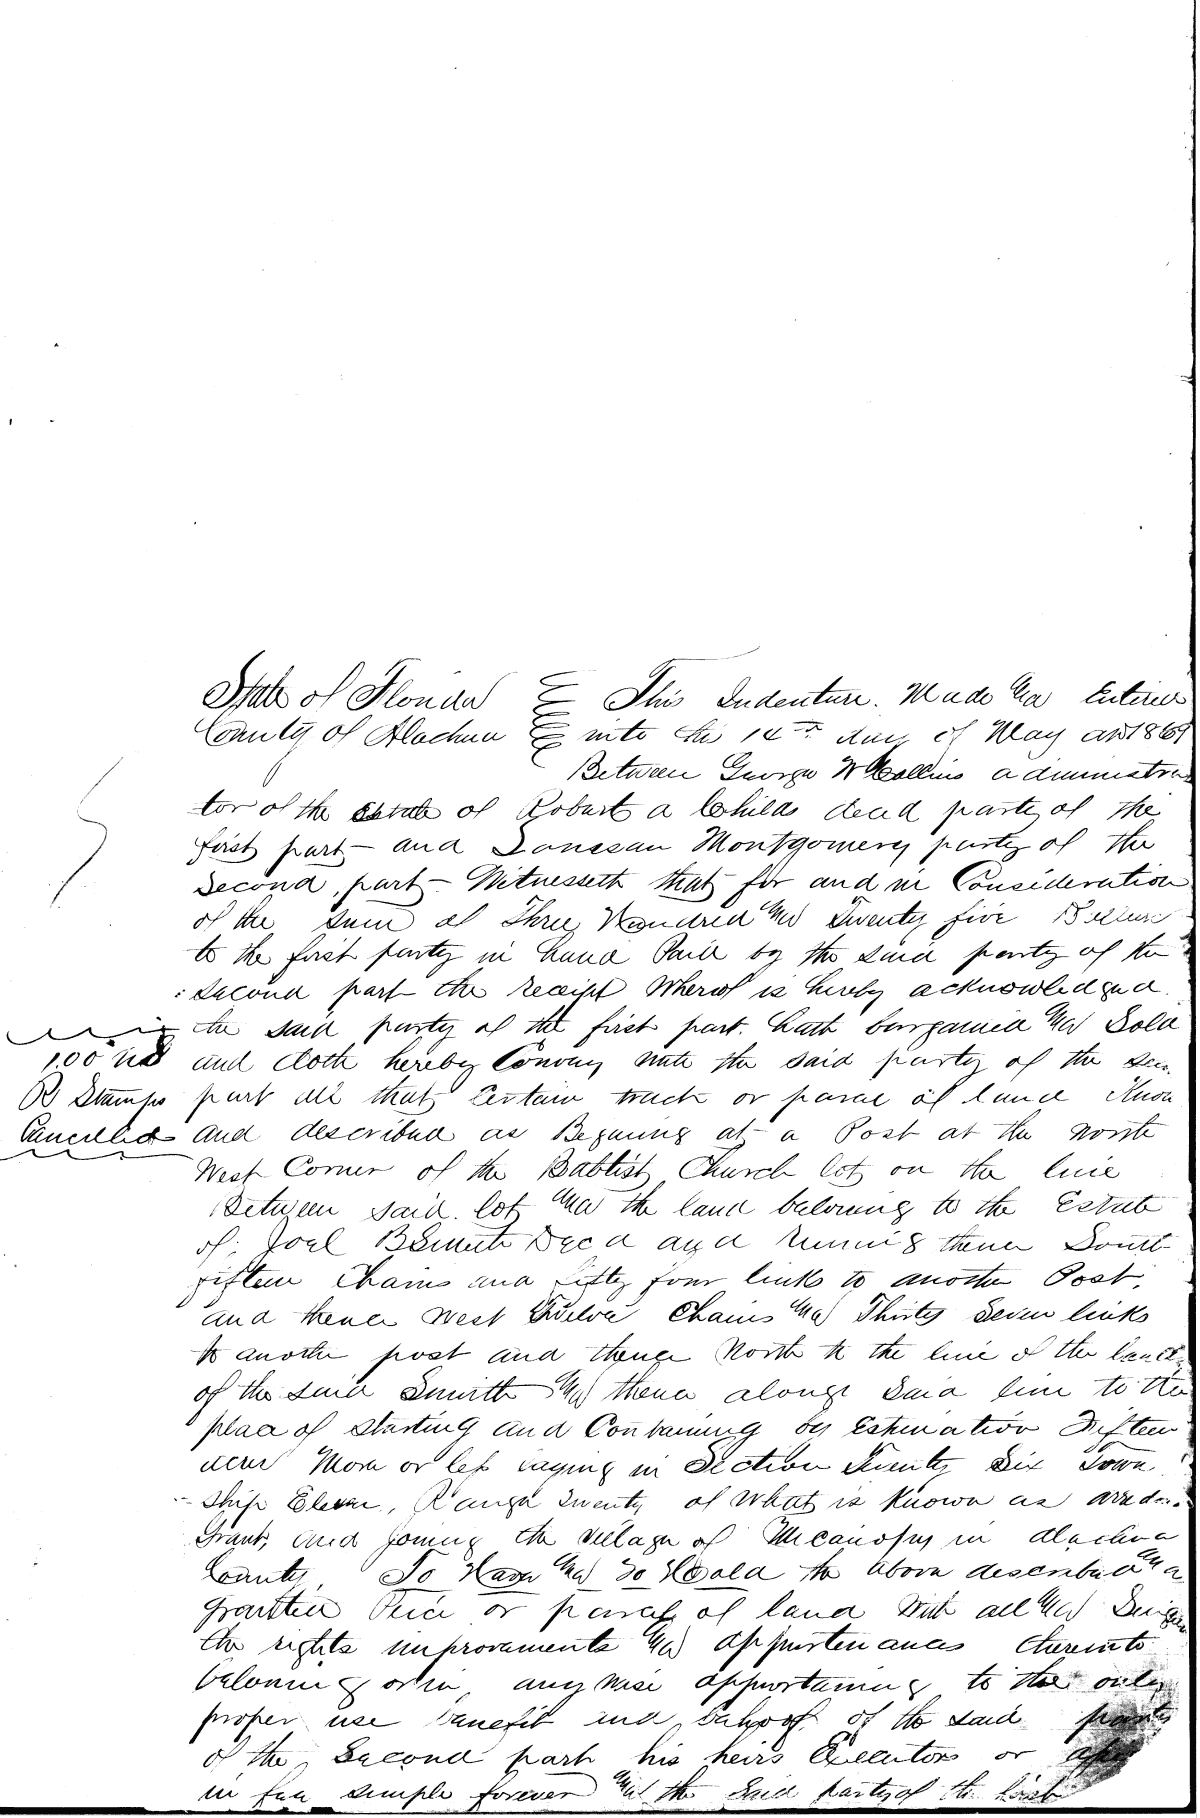 State of Florida This Indenture. Made and Entered
County of Alachua into this 14th day of May AD 1869
Between George W Collins administra
tor of the Estate of Robert a Childs decd party of the
first part and Montgomery party of the
second part Witnesseth that for and in Consideration
of the sum of Three Hundred and Twenty five Dollars
to the first party in hand Paid by the said party of the
second part the receipt Whereof is hereby acknowledged
the said party of the first part. hath bargained and Sold
1.00
and doth hereby Convey unto the said party of the sec.
R Stamps
part all that Certain tract or parcel of land Know
Cancelled
and described as Begining at a Post at the North
West Corner of the Babtist Church lot on the line
Between said lot and the land beloning to the Estate
of Joel B Smith Decd and runing thence South
fifteen Chains and fifty four links to another Post.
and thence West Twelve Chains and Thirty Seven links
to another post and thence North to the line of the land
of the said Smith and thence alonge said line to the
place of starting and Containing by Estimation Fifteen
acres More or less laying in Section Twenty Six Town
ship Eleven, Range Twenty of What is Known as
Grant, and joining the village of Micanopy in Alachua
County, To Have and To Hold the above described and
grantted Peice or parcel of land With all and Singular
the rights improvements and appurtenances thereunto
beloning or in any wise appertaining to the only
proper use benefit and behoof of the said party
of the Second part his heirs Executors or
in fee simple forever and the said party of the first